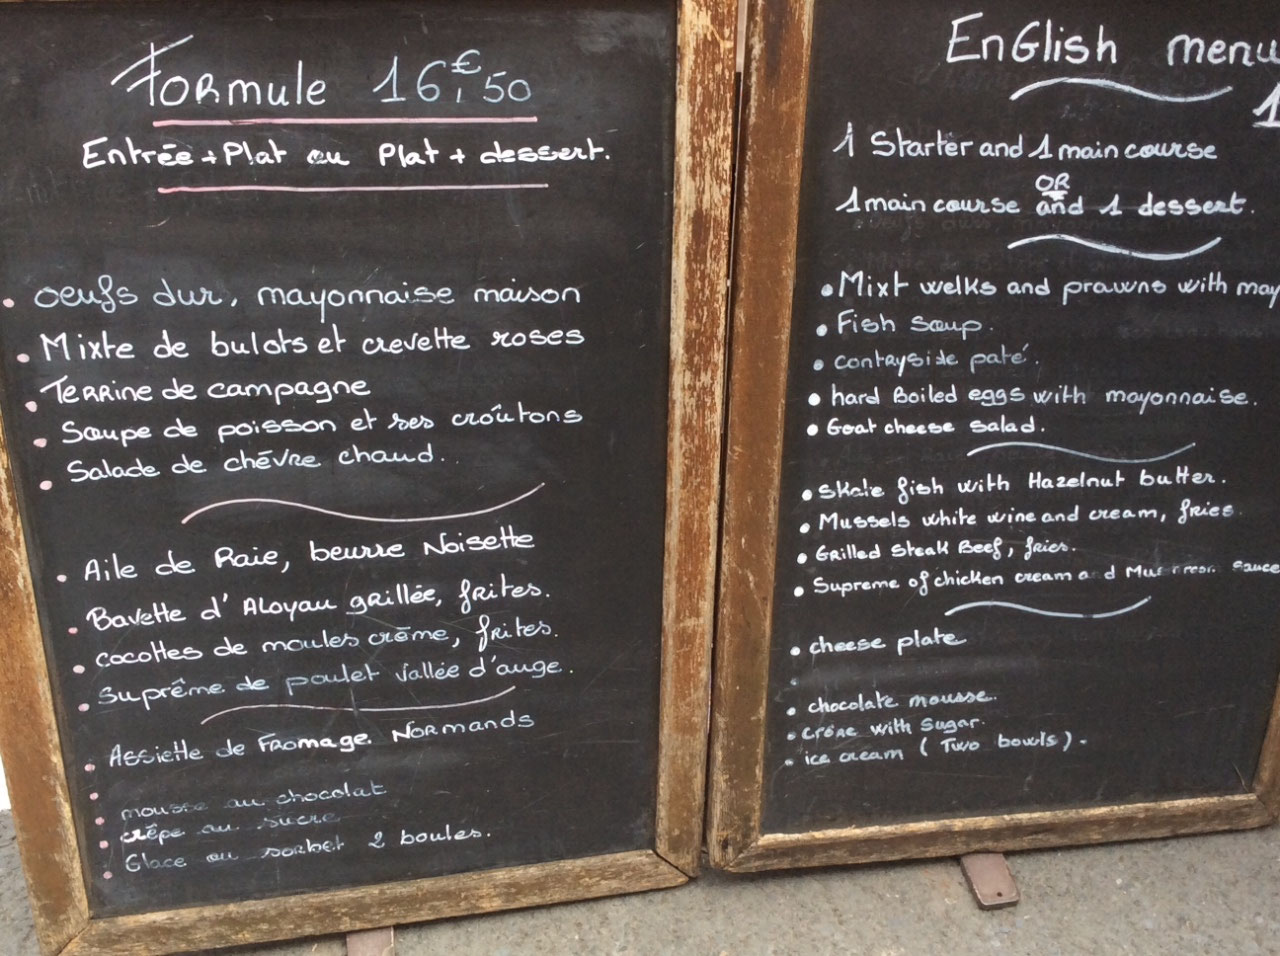 Formule 16€,50
Entrée + Plat ou Plat + dessert.
oeufs dur, mayonnaise maison
Mixte de bulots et crevette roses
Terrine de campagne
Soupe de poisson et ses croûtons
Salade de chèvre chaud.
Aile de Raie, beurre Noisette
Bavette d'Aloyau grillée, frites.
cocottes de moules crème, frites.
Suprême de poulet vallée d'auge.
Assiette de Fromage Normands
mousse au chocolat
crêpe au sucre
Glace ou sorbet 2 boules.
English menu
1
1 Starter and 1 main course
OR
1 main course and 1 dessert.
Mixt welks and prawns with may
Fish soup.
contryside paté.
hard Boiled eggs with mayonnaise.
Goat cheese salad.
Skate fish with Hazelnut butter.
Mussels white wine and cream, fries.
Grilled Steak Beef, fries.
Supreme of chicken cream and sauce
cheese plate
chocolate mousse.
with Sugar.
ice cream (Two bowls).